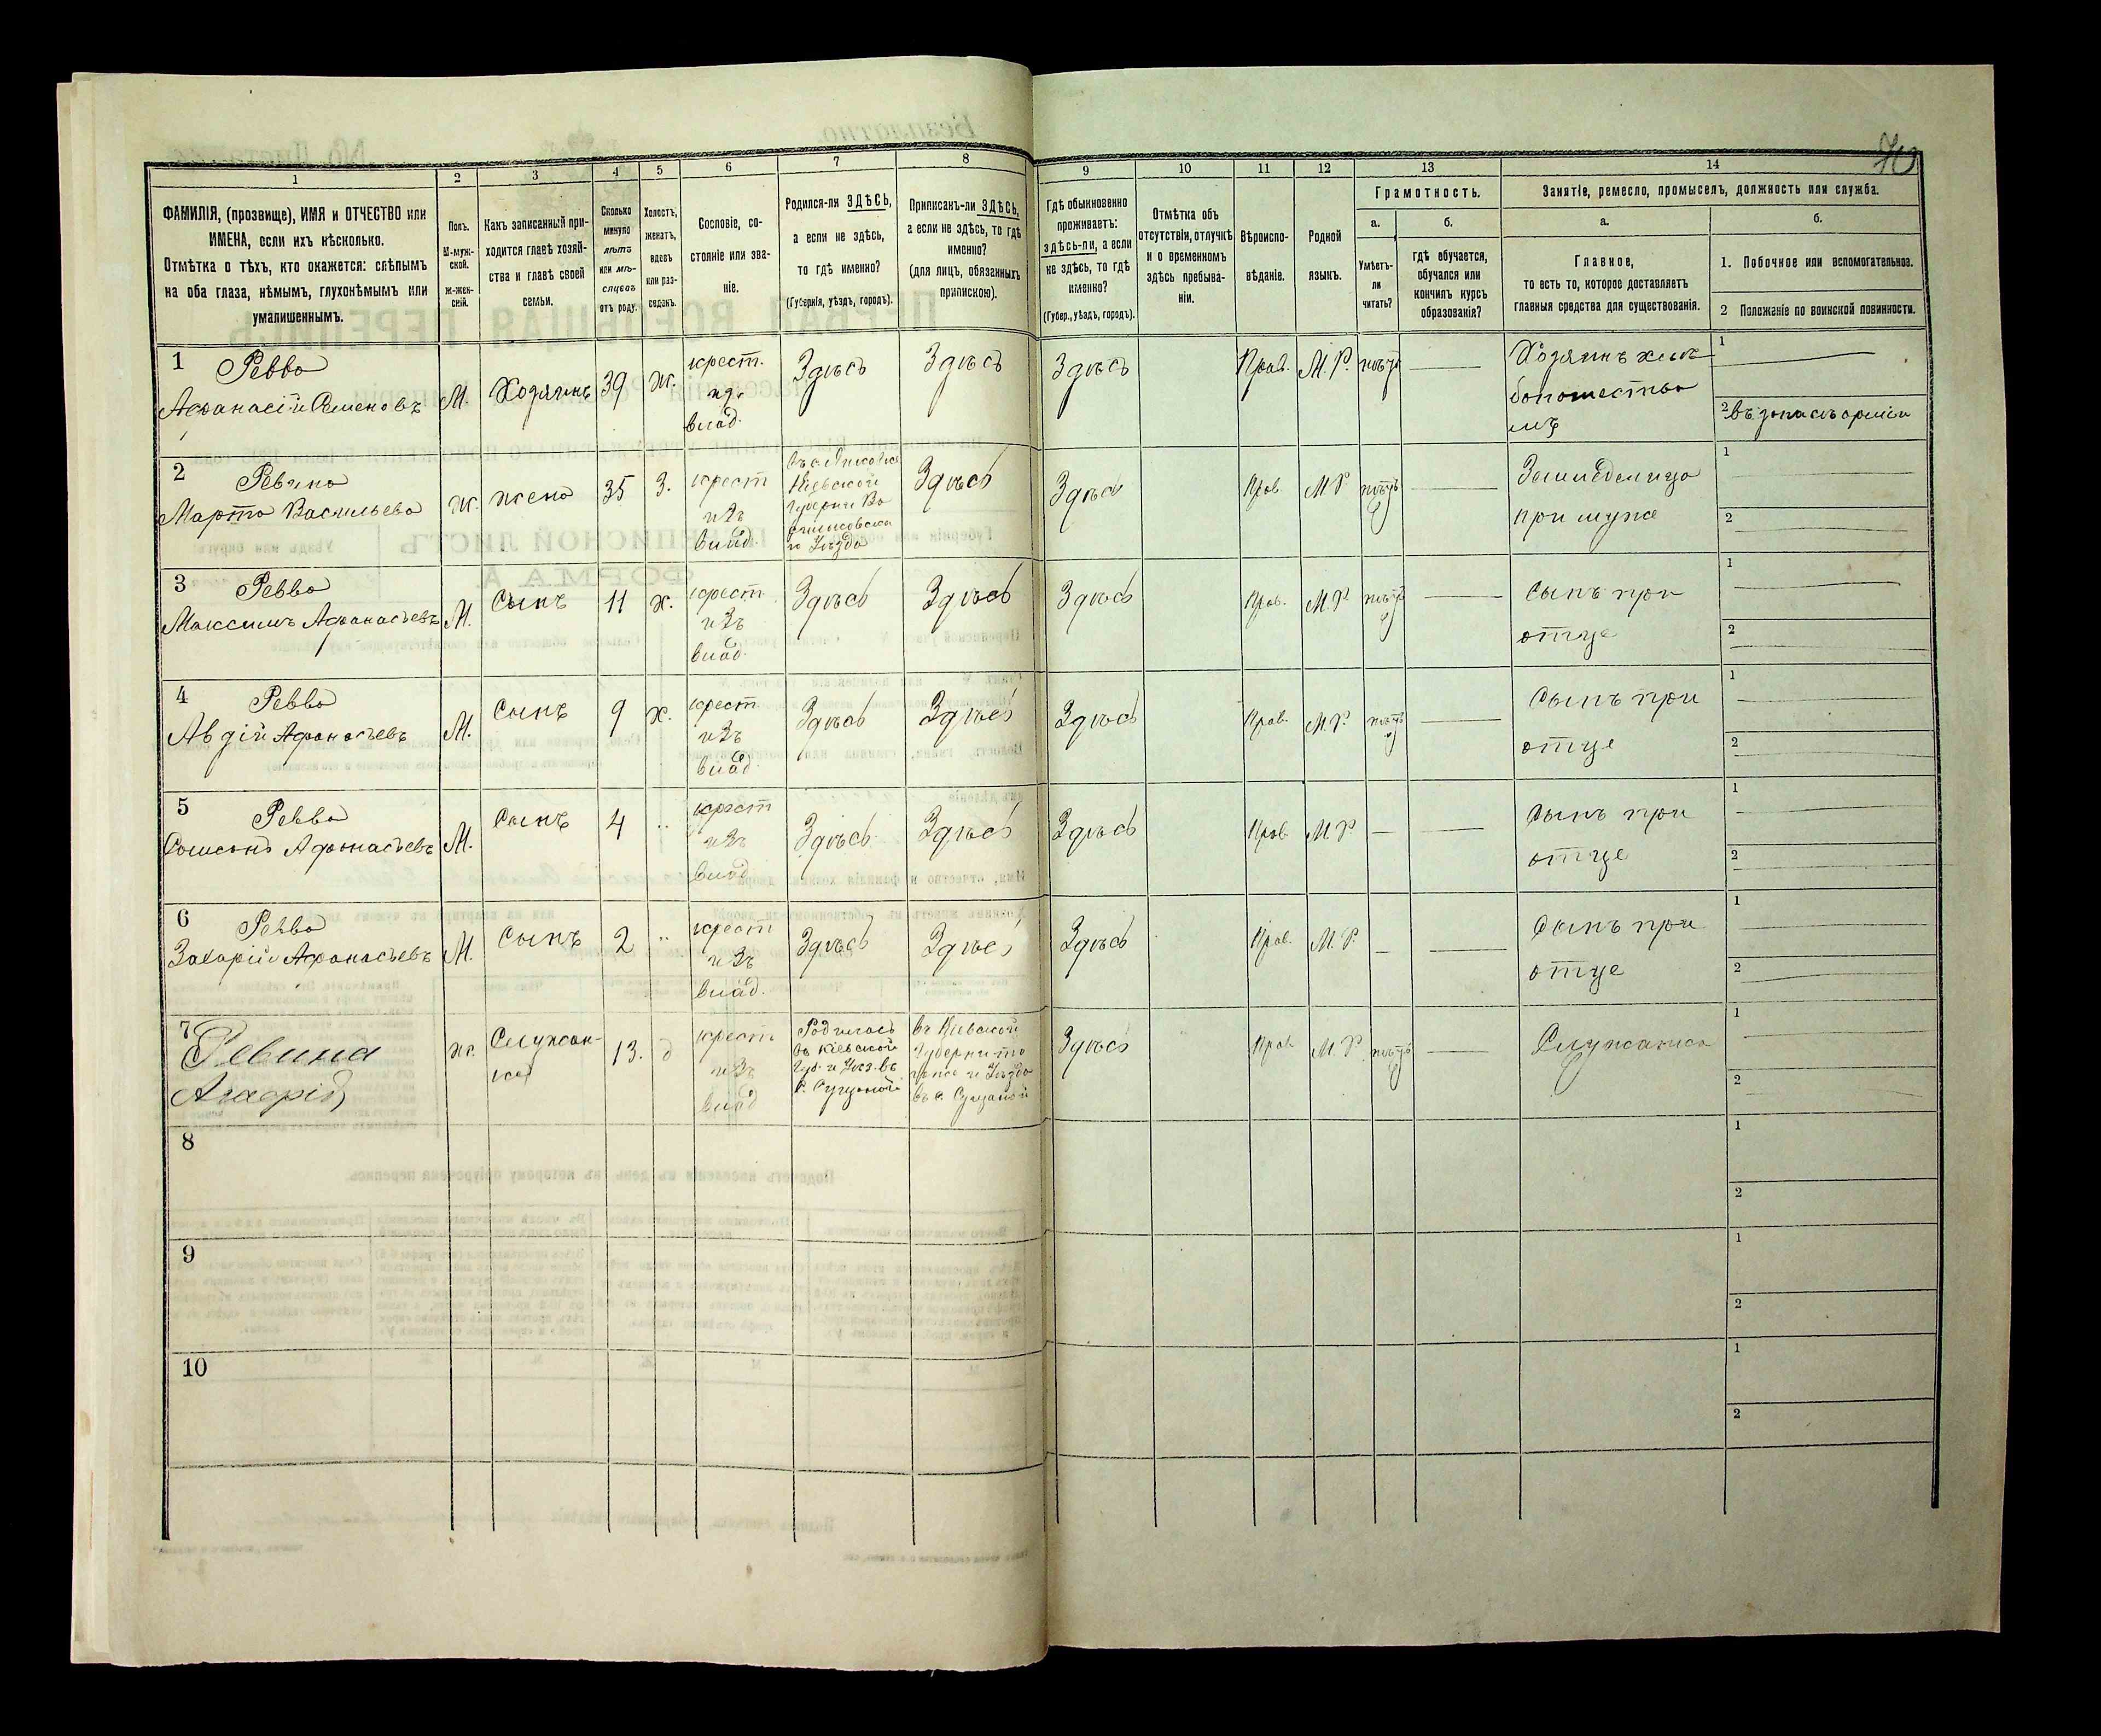 70
1
2
3
4
5
6
7
8
9
10
11
12
13
14
ФАМИЛІЯ, (прозвище), ИМЯ и ОТЧЕСТВО или
ИМЕНА, если ихъ нѣсколько.
Отмѣтка о тѣхъ, кто окажется: слѣпымъ
на оба глаза, нѣмымъ, глухонѣмымъ или
умалишеннымъ.
Полъ.
М-муж-
ской.
Ж-жен-
скій.
Какъ записанный при-
ходится главѣ хозяй-
ства и главѣ своей
семьи.
Сколько
минуло
лѣтъ
или мѣ-
сяцевъ
отъ роду.
Холостъ,
женатъ,
вдовъ
или раз-
веденъ.
Сословіе, со-
стояніе или зва-
ніе.
Родился-ли ЗДѢСЬ,
а если не здѣсь,
то гдѣ именно?
(Губернія, уѣздъ, городъ).
Приписанъ-ли ЗДѢСЬ,
а если не здѣсь, то гдѣ
именно?
(для лицъ, обязанныхъ
припискою).
Гдѣ обыкновенно
проживаетъ:
здѣсь-ли, а если
не здѣсь, то гдѣ
именно?
(Губер., уѣздъ, городъ).
Отмѣтка объ
отсутствіи, отлучкѣ
и о временномъ
здѣсь пребыва-
ніи.
Вѣроиспо-
вѣданіе.
Родной
языкъ.
Грамотность.
а.
Умѣетъ-
ли
читать?
б.
гдѣ обучается,
обучался или
кончилъ курсъ
образованія?
Занятіе, ремесло, промыселъ, должность или служба.
а.
Главное,
то есть то, которое доставляетъ
главныя средства для существованія.
б.
1. Побочное или вспомогательное.
2 Положеніе по воинской повинности.
1 Ревва
Афанасій Семеновъ
М.
Хозяинъ
39
ж.
крест.
изъ
влад.
Здѣсь
Здѣсь
Здѣсь
Прав.
М. Р.
нѣтъ
Хозяинъ хлѣ
бопашество
мъ
1
2 въ запасъ арміи
2 Ревина
Марта Васильева
Ж.
жена
35
З.
крест
изъ
влад.
Кіевской
Губерніи Ва
сильковска
го Уѣзда
Здѣсь
Здѣсь
Прав
М. Р.
нѣтъ
Земледелица
при муже
1
2
3 Ревва
Максимъ Афанасьевъ
М.
Сынъ
11
х.
крест
изъ
влад.
Здѣсь
Здѣсь
Здѣсь
Прав.
М. Р.
нѣтъ
Сынъ при
отце
1
2
4 Ревва
Авдій Афанасьевъ
М.
Сынъ
9
х.
крест
изъ
влад.
Здѣсь
Здѣсь
Здѣсь
Прав.
М. Р.
нѣтъ
Сынъ при
отце
1
2
5 Ревва
Самсонъ Афонасьевъ
М.
Сынъ
4
крест
изъ
влад.
Здѣсь
Здѣсь
Здѣсь
Прав
М. Р.
Сынъ при
отце
1
2
6 Ревва
Захарій Афанасьевъ
М.
Сынъ
2
крест
изъ
влад.
Здѣсь
Здѣсь
Здѣсь
Прав.
М. Р.
Сынъ при
отце
1
2
7 Ревина
ж.
Служан-
ка
13.
д
крест
изъ
влад
Родилась
въ Кіевской
Губ. и Уѣз. въ
въ Кіевской
Губерни то
и Уѣзда
Здѣсь
Прав
М. Р.
нѣтъ
Служанка
1
2
8
1
2
9
1
2
10
1
2